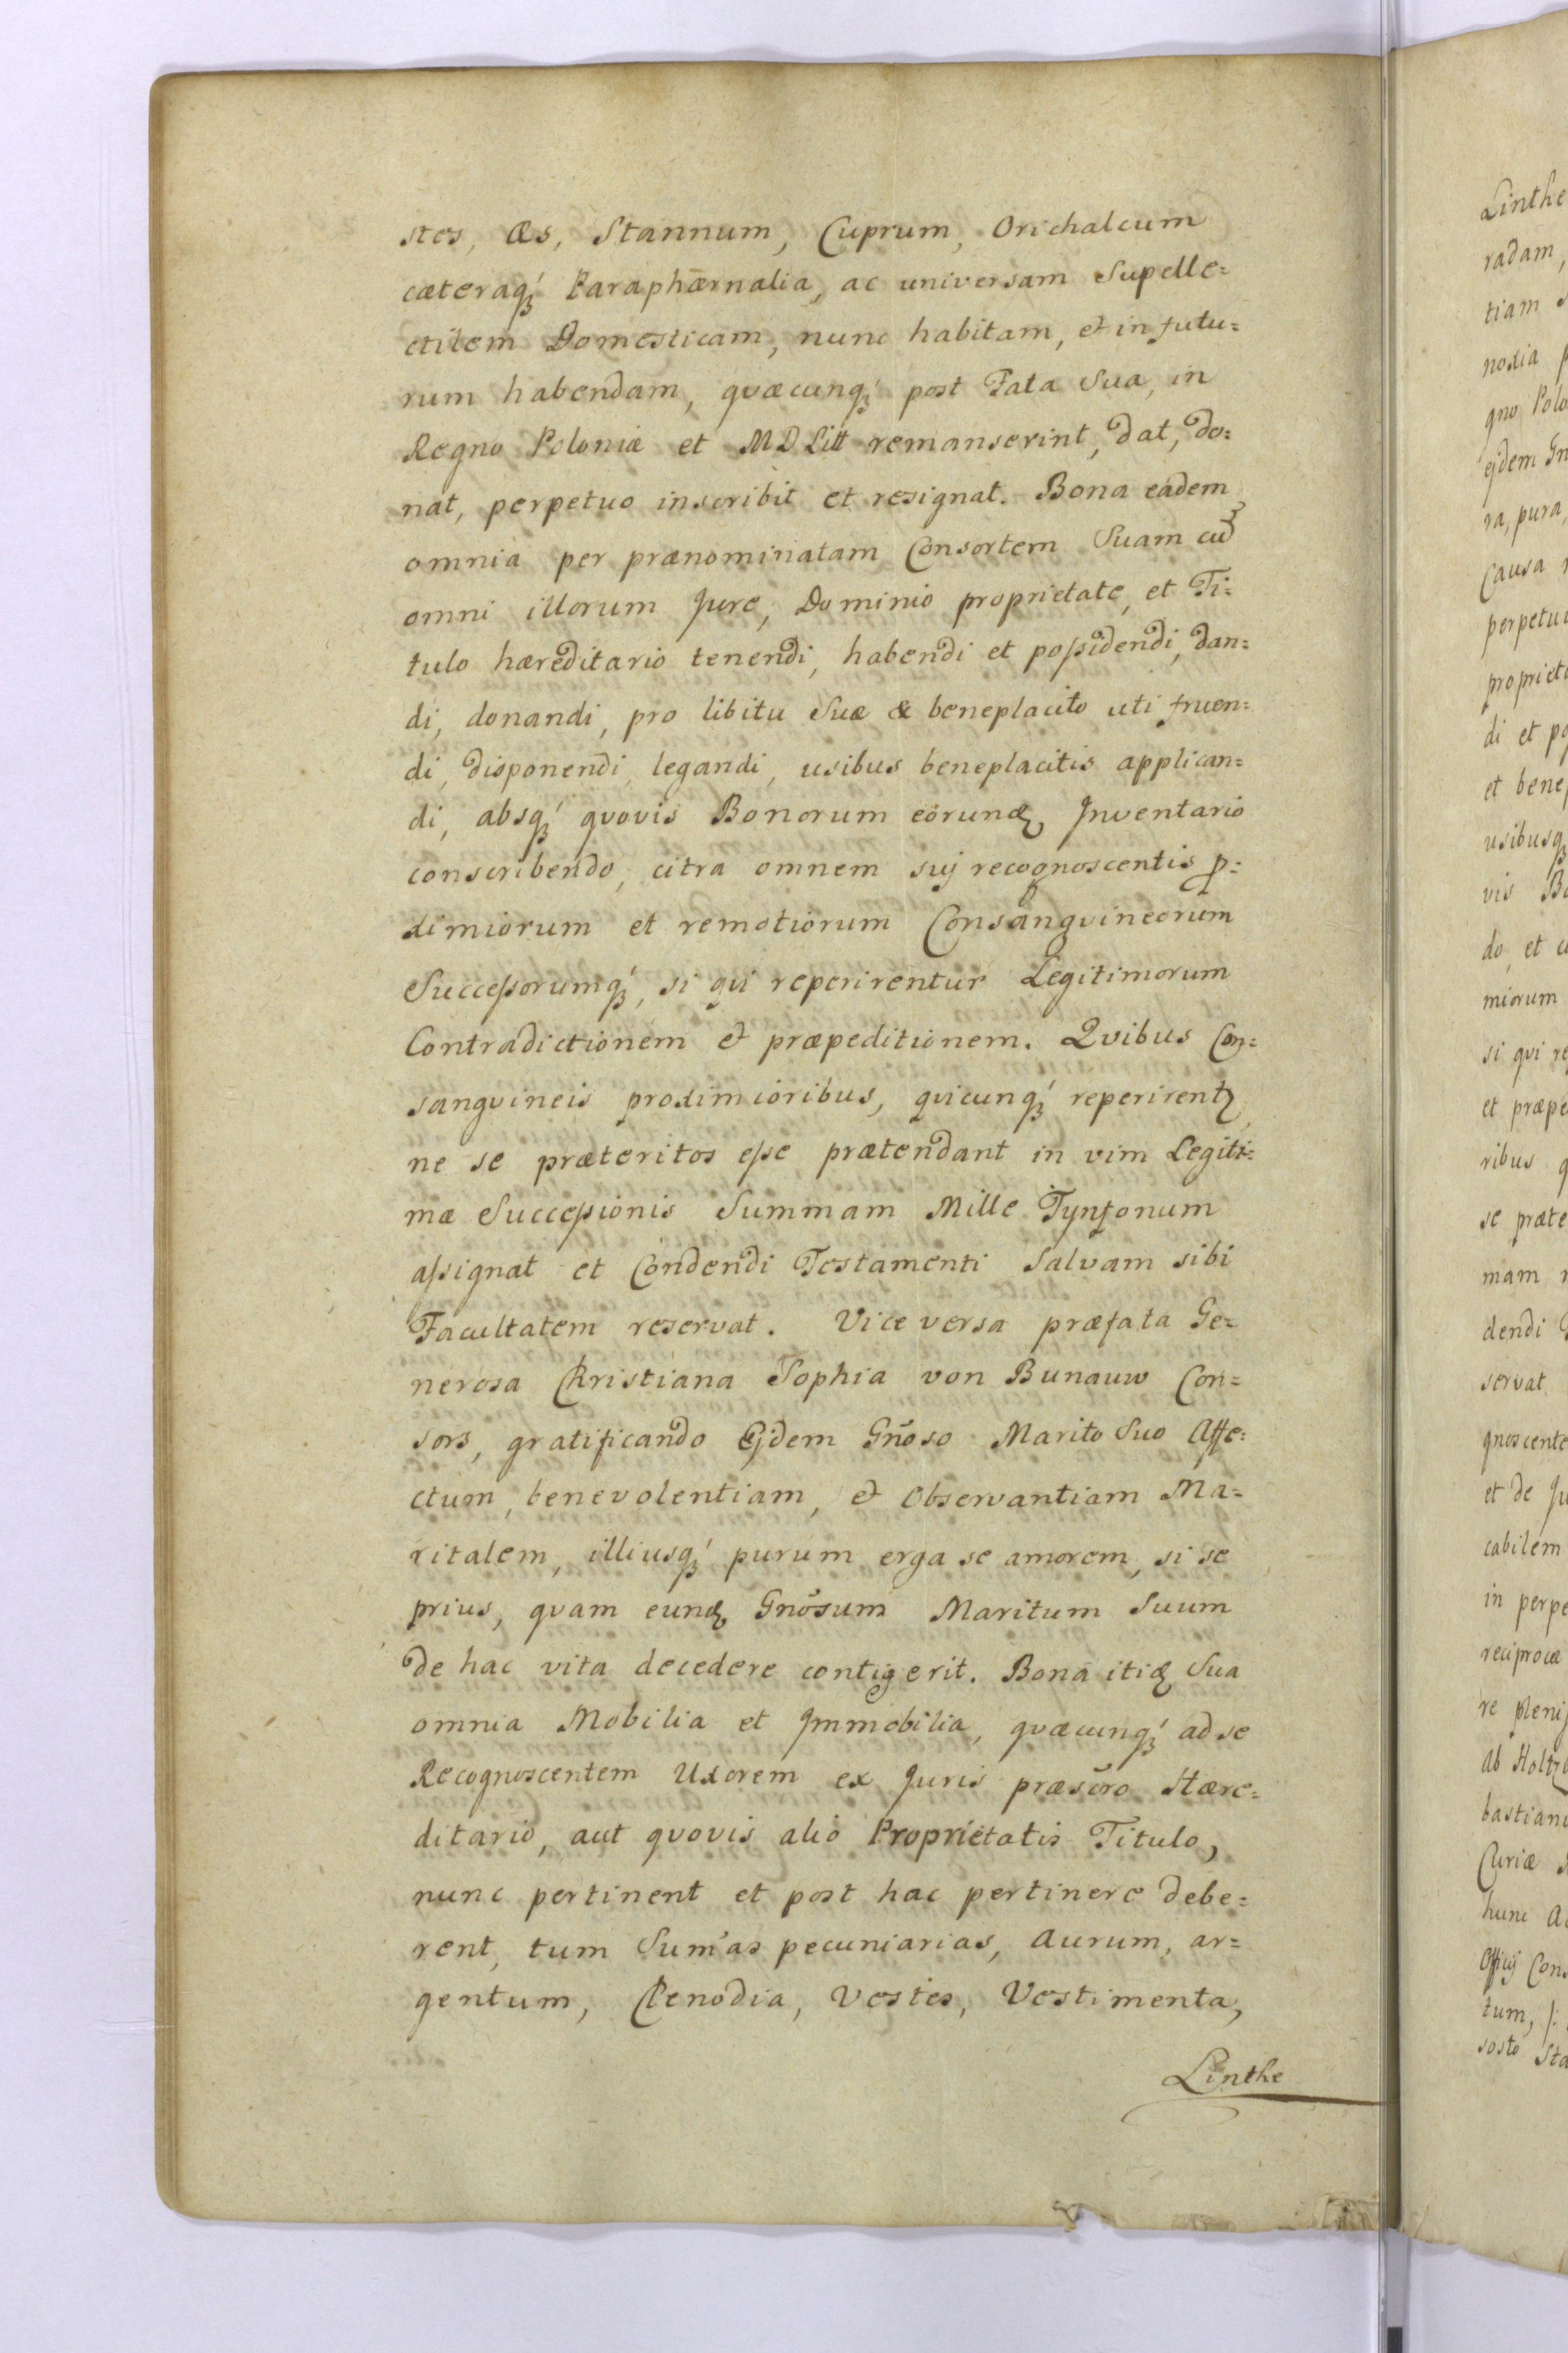 stes, Æs, Stannum, Cuprum, Orichalcum
cæteraqꝫ Paraphærnalia, ac universam Supelle=
ctilem Domesticam, nunc habitam, et in futu=
rum habendam, qvæcunqꝫ post Fata Sua, in
Regno Poloniæ et MDLitt remanserint, dat, do=
nat, perpetuo inscribit et resignat. Bona eadem
omnia per prænominatam Consortem Suam cũ
omni illorum Jure, Dominio proprietate, et Ti=
tulo hæreditario tenendi, habendi et poſsidendi, dan=
di, donandi, pro libitu Suæ & beneplacito uti fruen=
di, disponendi, legandi, usibus beneplacitis applican=
di, absqꝫ qvovis Bonorum eorund. Inventario
conscribendo, citra omnem suj recognoscentis p=
ximiorum et remotiorum Consangvineorum
Succeſsorumqꝫ, si qvi reperirentur Legitimorum
Contradictionem et præpeditionem. Qvibus Con=
sangvineis proximioribus, qvicunqꝫ reperirentꝫ,
ne se præteritos eſse prætendant in vim Legiti=
mæ Succeſsionis Summam Mille Tynfonum
aſsignat et Condendi Testamenti Salvam sibi
Facultatem reservat. Vice versa præfata Ge=
nerosa Christiana Sophia von Bunauw Con=
sors, gratificando Ejdem Gñoso Marito Suo Affe=
ctum, benevolentiam, et Observantiam Ma=
ritalem, illiusqꝫ purum erga se amorem, si se
prius, qvam eund. Gnõsum Maritum Suum
de hac vita decedere contigerit. Bona itid. Sua
omnia Mobilia et Immobilia, qvæcunqꝫ ad se
Recognoscentem Uxorem ex Juris præsc̃ro Hære=
ditario, aut qvovis alio Proprietatis Titulo,
nunc pertinent et post hac pertinere debe=
rent, tum Sum̃as pecuniarias, Aurum, ar=
gentum, Clenodia, Vestes, Vestimenta,
Linthe
Linthe
radam,
tiam
nodia
gno Polo
ejdem Gn
ra, pura,
Causa
perpetu
propriet
di et po
et bene
usibusqꝫ
vis Bo
do, et
miorum
si qvi re
et præpe
ribus q
se præte
mam
dendi
servat
gnoscente
et de Ju
cabilem
in perpe
reciproce
re pleni
ab Holtz
bastian
Curiæ
hunc Ac
Officij Cons
tum,
sosto Sta